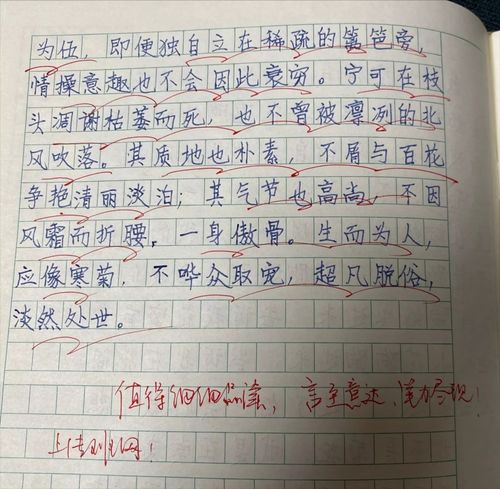 为伍，即便独自立在稀疏的篱笆旁，
情操意趣也不会因此衰穷。宁可在枝
头凋谢枯萎而死，也不曾被凛冽的北
风吹落。其质地也朴素，不屑与百花
争艳清丽淡泊；其气节也高尚，不因
风霜而折腰，一身傲骨。生而为人，
应像寒菊，不哗众取宠，超凡脱俗，
淡然处世。
值得细细品读，言至意达、笔力尽现！